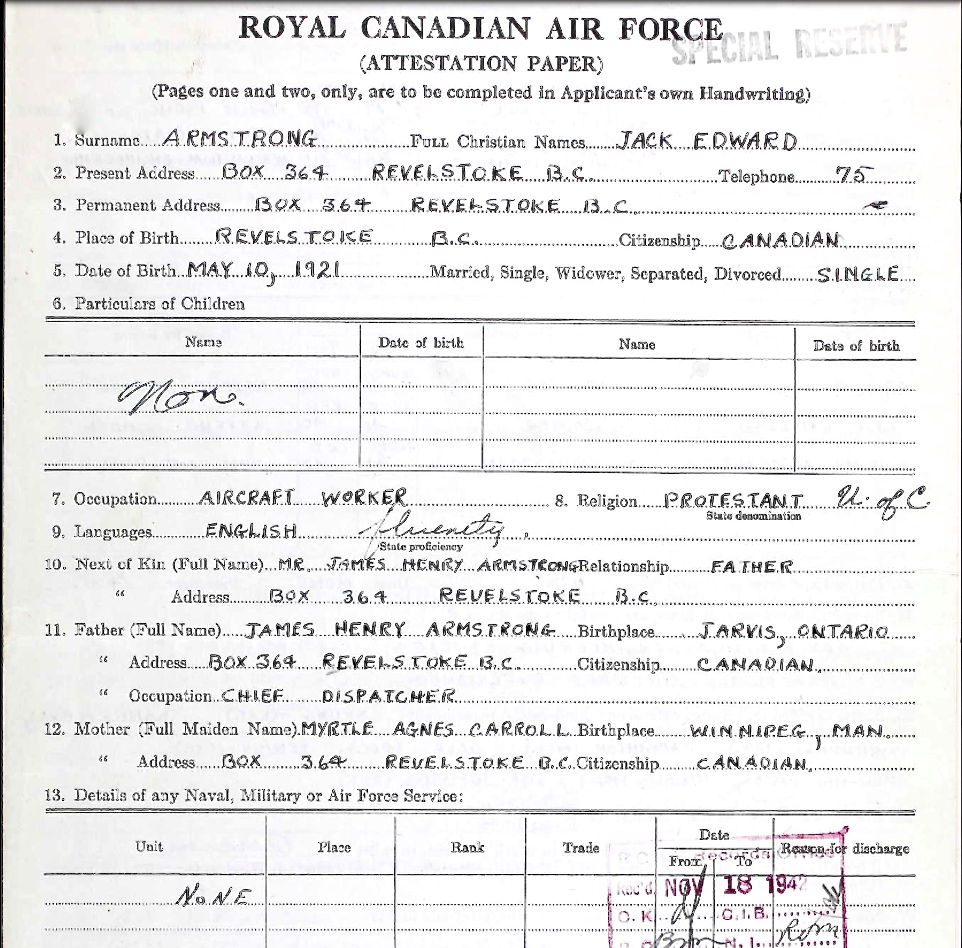 ROYAL CANADIAN AIR FORCE
SPECIAL RESERVE
(ATTESTATION PAPER)
(Pages one and two, only, are to be completed in Applicant's own Handwriting)
1. Surname ARMSTRONG Full Christian Names JACK EDWARD
2. Present Address BOX 364 REVELSTOKE B.C. Telephone 75
3. Permanent Address BOX 364 REVELSTOKE B.C.
4. Place of Birth REVELSTOKE B.C. Citizenship CANADIAN
5. Date of Birth MAY 10, 1921 Married, Single, Widower, Separated, Divorced SINGLE
6. Particulars of Children
Name Date of birth Name Date of birth
Non.
7. Occupation AIRCRAFT WORKER 8. Religion PROTESTANT U. of C.
State denomination
9. Languages ENGLISH
State proficiency
10. Next of Kin (Full Name) MR. JAMES HENRY ARMSTRONG Relationship FATHER
" Address BOX 364 REVELSTOKE B.C.
11. Father (Full Name) JAMES HENRY ARMSTRONG Birthplace JARVIS, ONTARIO
" Address BOX 364 REVELSTOKE B.C. Citizenship CANADIAN
" Occupation CHIEF DISPATCHER
12. Mother (Full Maiden Name) MYRTLE AGNES CARROLL Birthplace WINNIPEG, MAN.
" Address BOX 364 REVELSTOKE B.C. Citizenship CANADIAN
13. Details of any Naval, Military or Air Force Service:
Unit Place Rank Trade Date Reason for discharge
From To
NONE
Rec'd. NOV 18 1942
O.K. C.I.B.